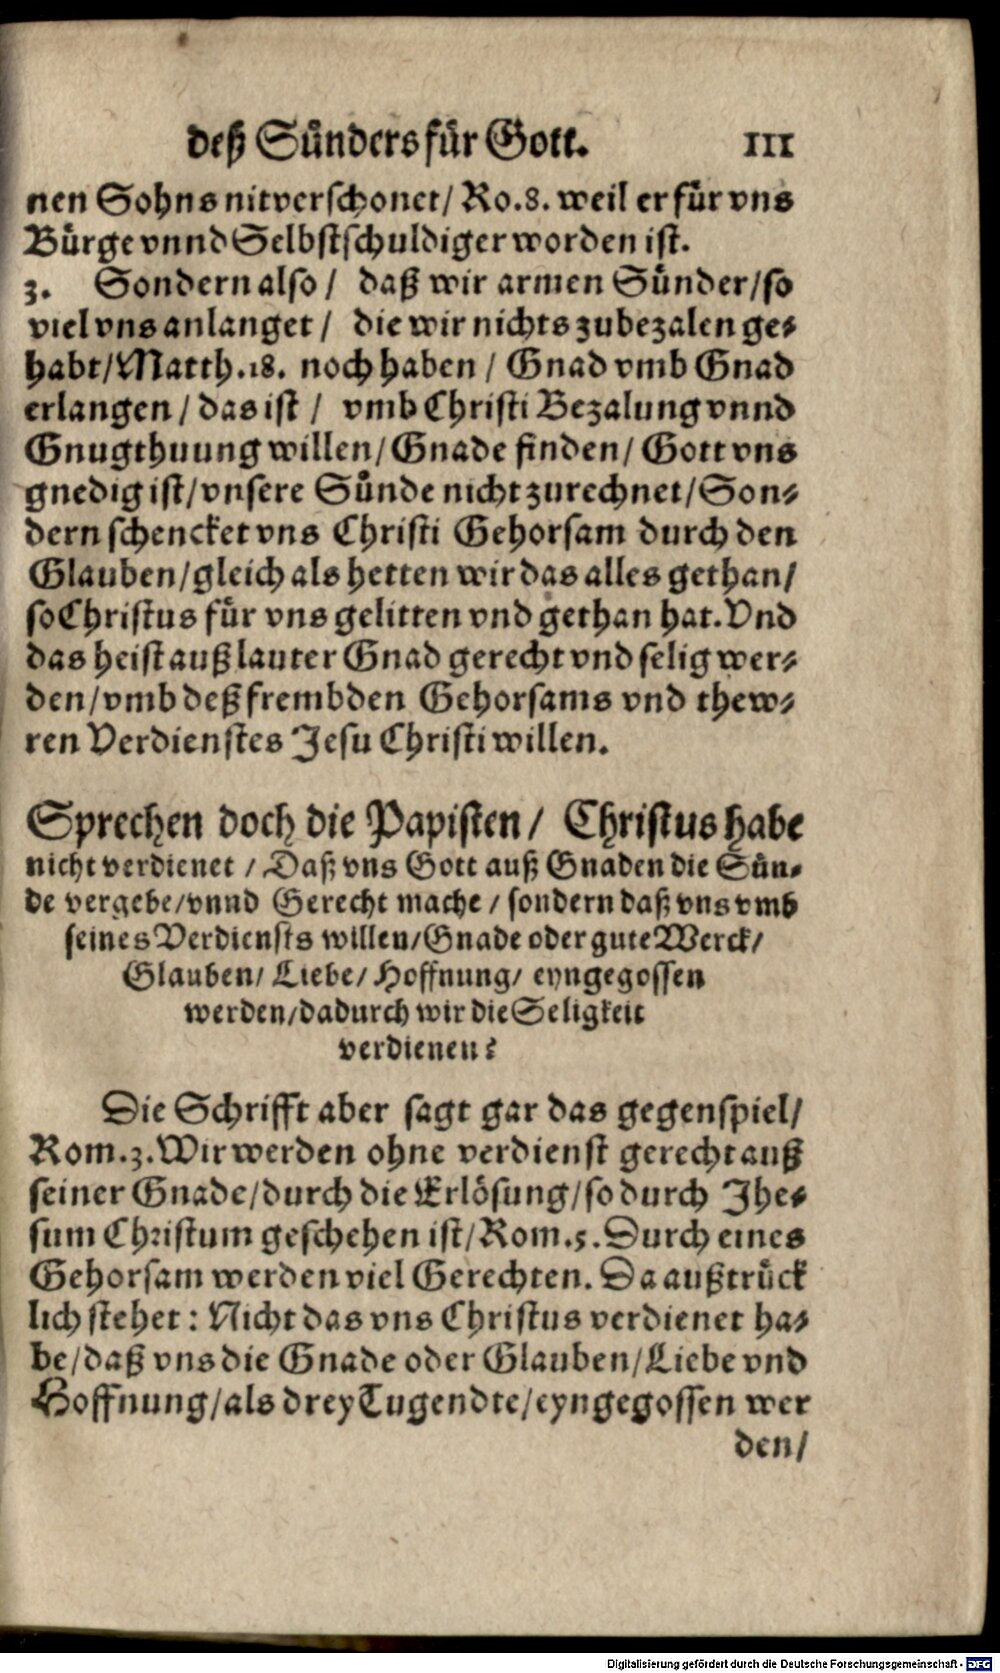 deß Sünders für Gott. 111
nen Sohns nit verschonet/ Ro.8. weil er für vns
Bürge vnnd Selbstschuldiger worden ist.
3. Sondern also/ daß wir armen Sünder/so
viel vns anlanget/ die wir nichts zubezalen ge⸗
habt/Matth.18. noch haben/ Gnad vmb Gnad
erlangen/das ist/ vmb Christi Bezalung vnnd
Gnugthuung willen/Gnade finden/ Gott vns
gnedig ist/vnsere Sünde nicht zurechnet/Son⸗
dern schencket vns Christi Gehorsam durch den
Glauben/gleich als hetten wir das alles gethan/
so Christus für vns gelitten vnd gethan hat. Vnd
das heist auß lauter Gnad gerecht vnd selig wer⸗
den/vmb deß frembden Gehorsams vnd thew⸗
ren Verdienstes Jesu Christi willen.
Sprechen doch die Papisten/ Christus habe
nicht verdienet/Daß vns Gott auß Gnaden die Sün⸗
de vergebe/vnnd Gerecht mache/sondern daß vns vmb
seines Verdiensts willen/Gnade oder gute Werck/
Glauben/Liebe/Hoffnung/ eyngegossen
werden/dadurch wir die Seligkeit
verdienen?
Die Schrifft aber sagt gar das gegenspiel/
Rom.3. Wir werden ohne verdienst gerecht auß
seiner Gnade/durch die Erlösung/so durch Jhe⸗
sum Christum geschehen ist/Rom.5. Durch eines
Gehorsam werden viel Gerechten. Da außtrück
lich stehet: Nicht das vns Christus verdienet ha⸗
be/daß vns die Gnade oder Glauben/Liebe vnd
Hoffnung/als drey Tugendte/eyngegossen wer
den/
Digitalisierung gefördert durch die Deutsche Forschungsgemeinschaft - DFG